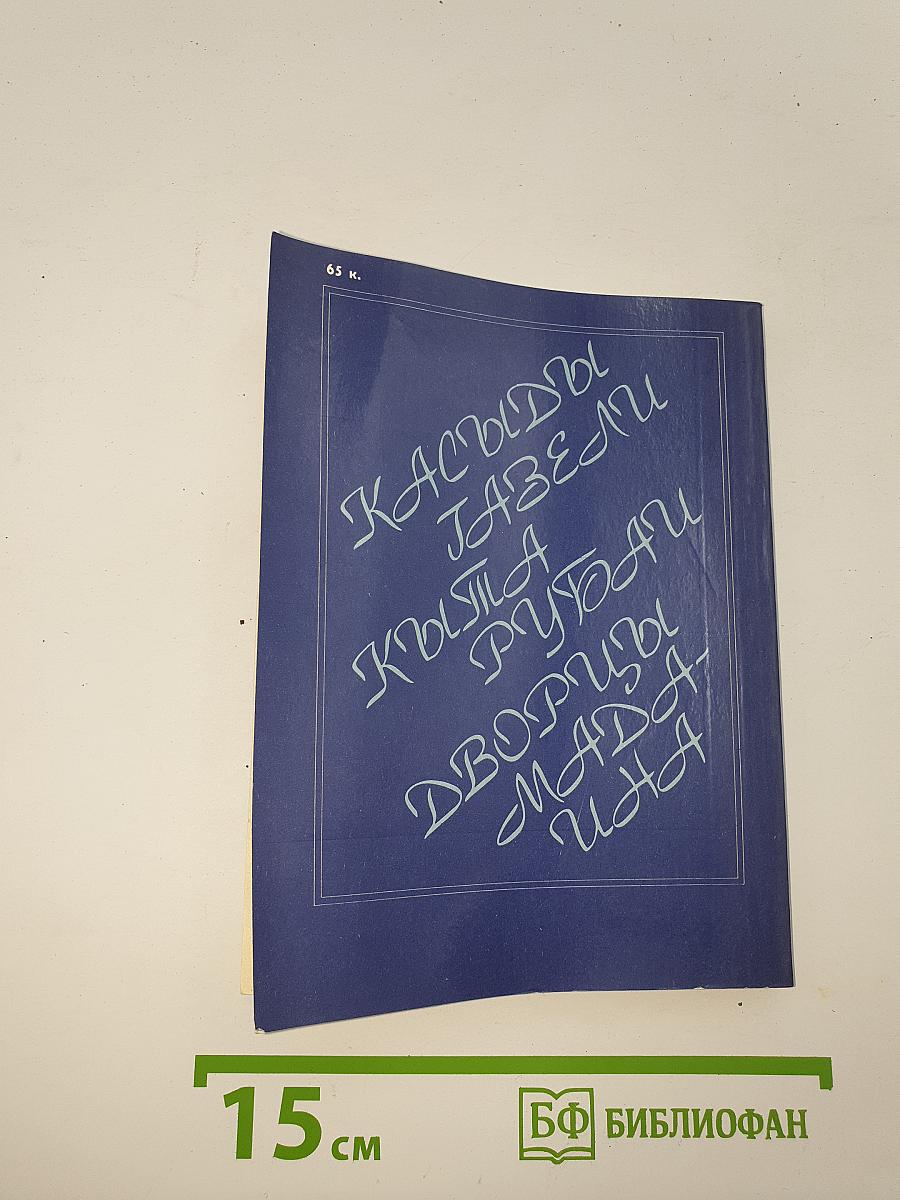 65 к.
КАСЫДЫ
ГАЗЕЛИ
КЫТА
РУБАИ
ДВОРЦЫ
МАДА-
ИНА
15 см
БФ БИБЛИОФАН